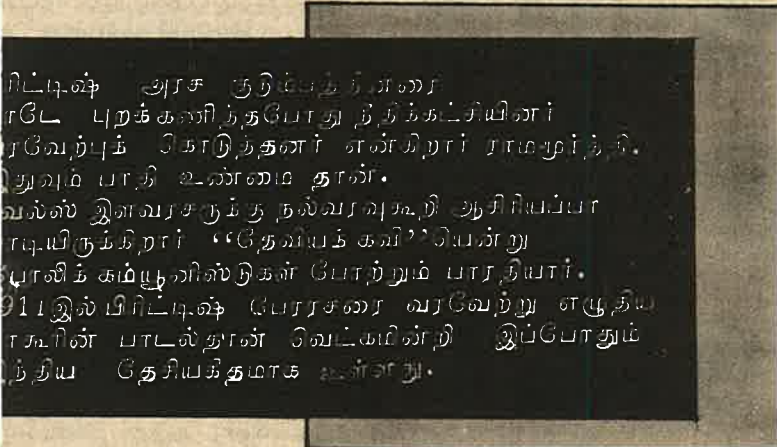 ரிட்டிஷ் அரச குடும்பத்தினரை
ாடே புறக்கணித்தபோது நீதிக்கட்சியினர்
ரவேற்புக் கொடுத்தனர் என்கிறார் ராமமூர்த்தி.
இதுவும் பாதி உண்மை தான்.
வல்ஸ் இளவரசருக்கு நல்வரவுகூறி ஆசிரியப்பா
ாடியிருக்கிறார் “தேசியக் கவி”யென்று
போலிக் கம்யூனிஸ்டுகள் போற்றும் பாரதியார்.
911இல் பிரிட்டிஷ் பேரரசரை வரவேற்று எழுதிய
ாகூரின் பாடல்தான் வெட்கமின்றி இப்போதும்
இந்திய தேசியகீதமாக உள்ளது.